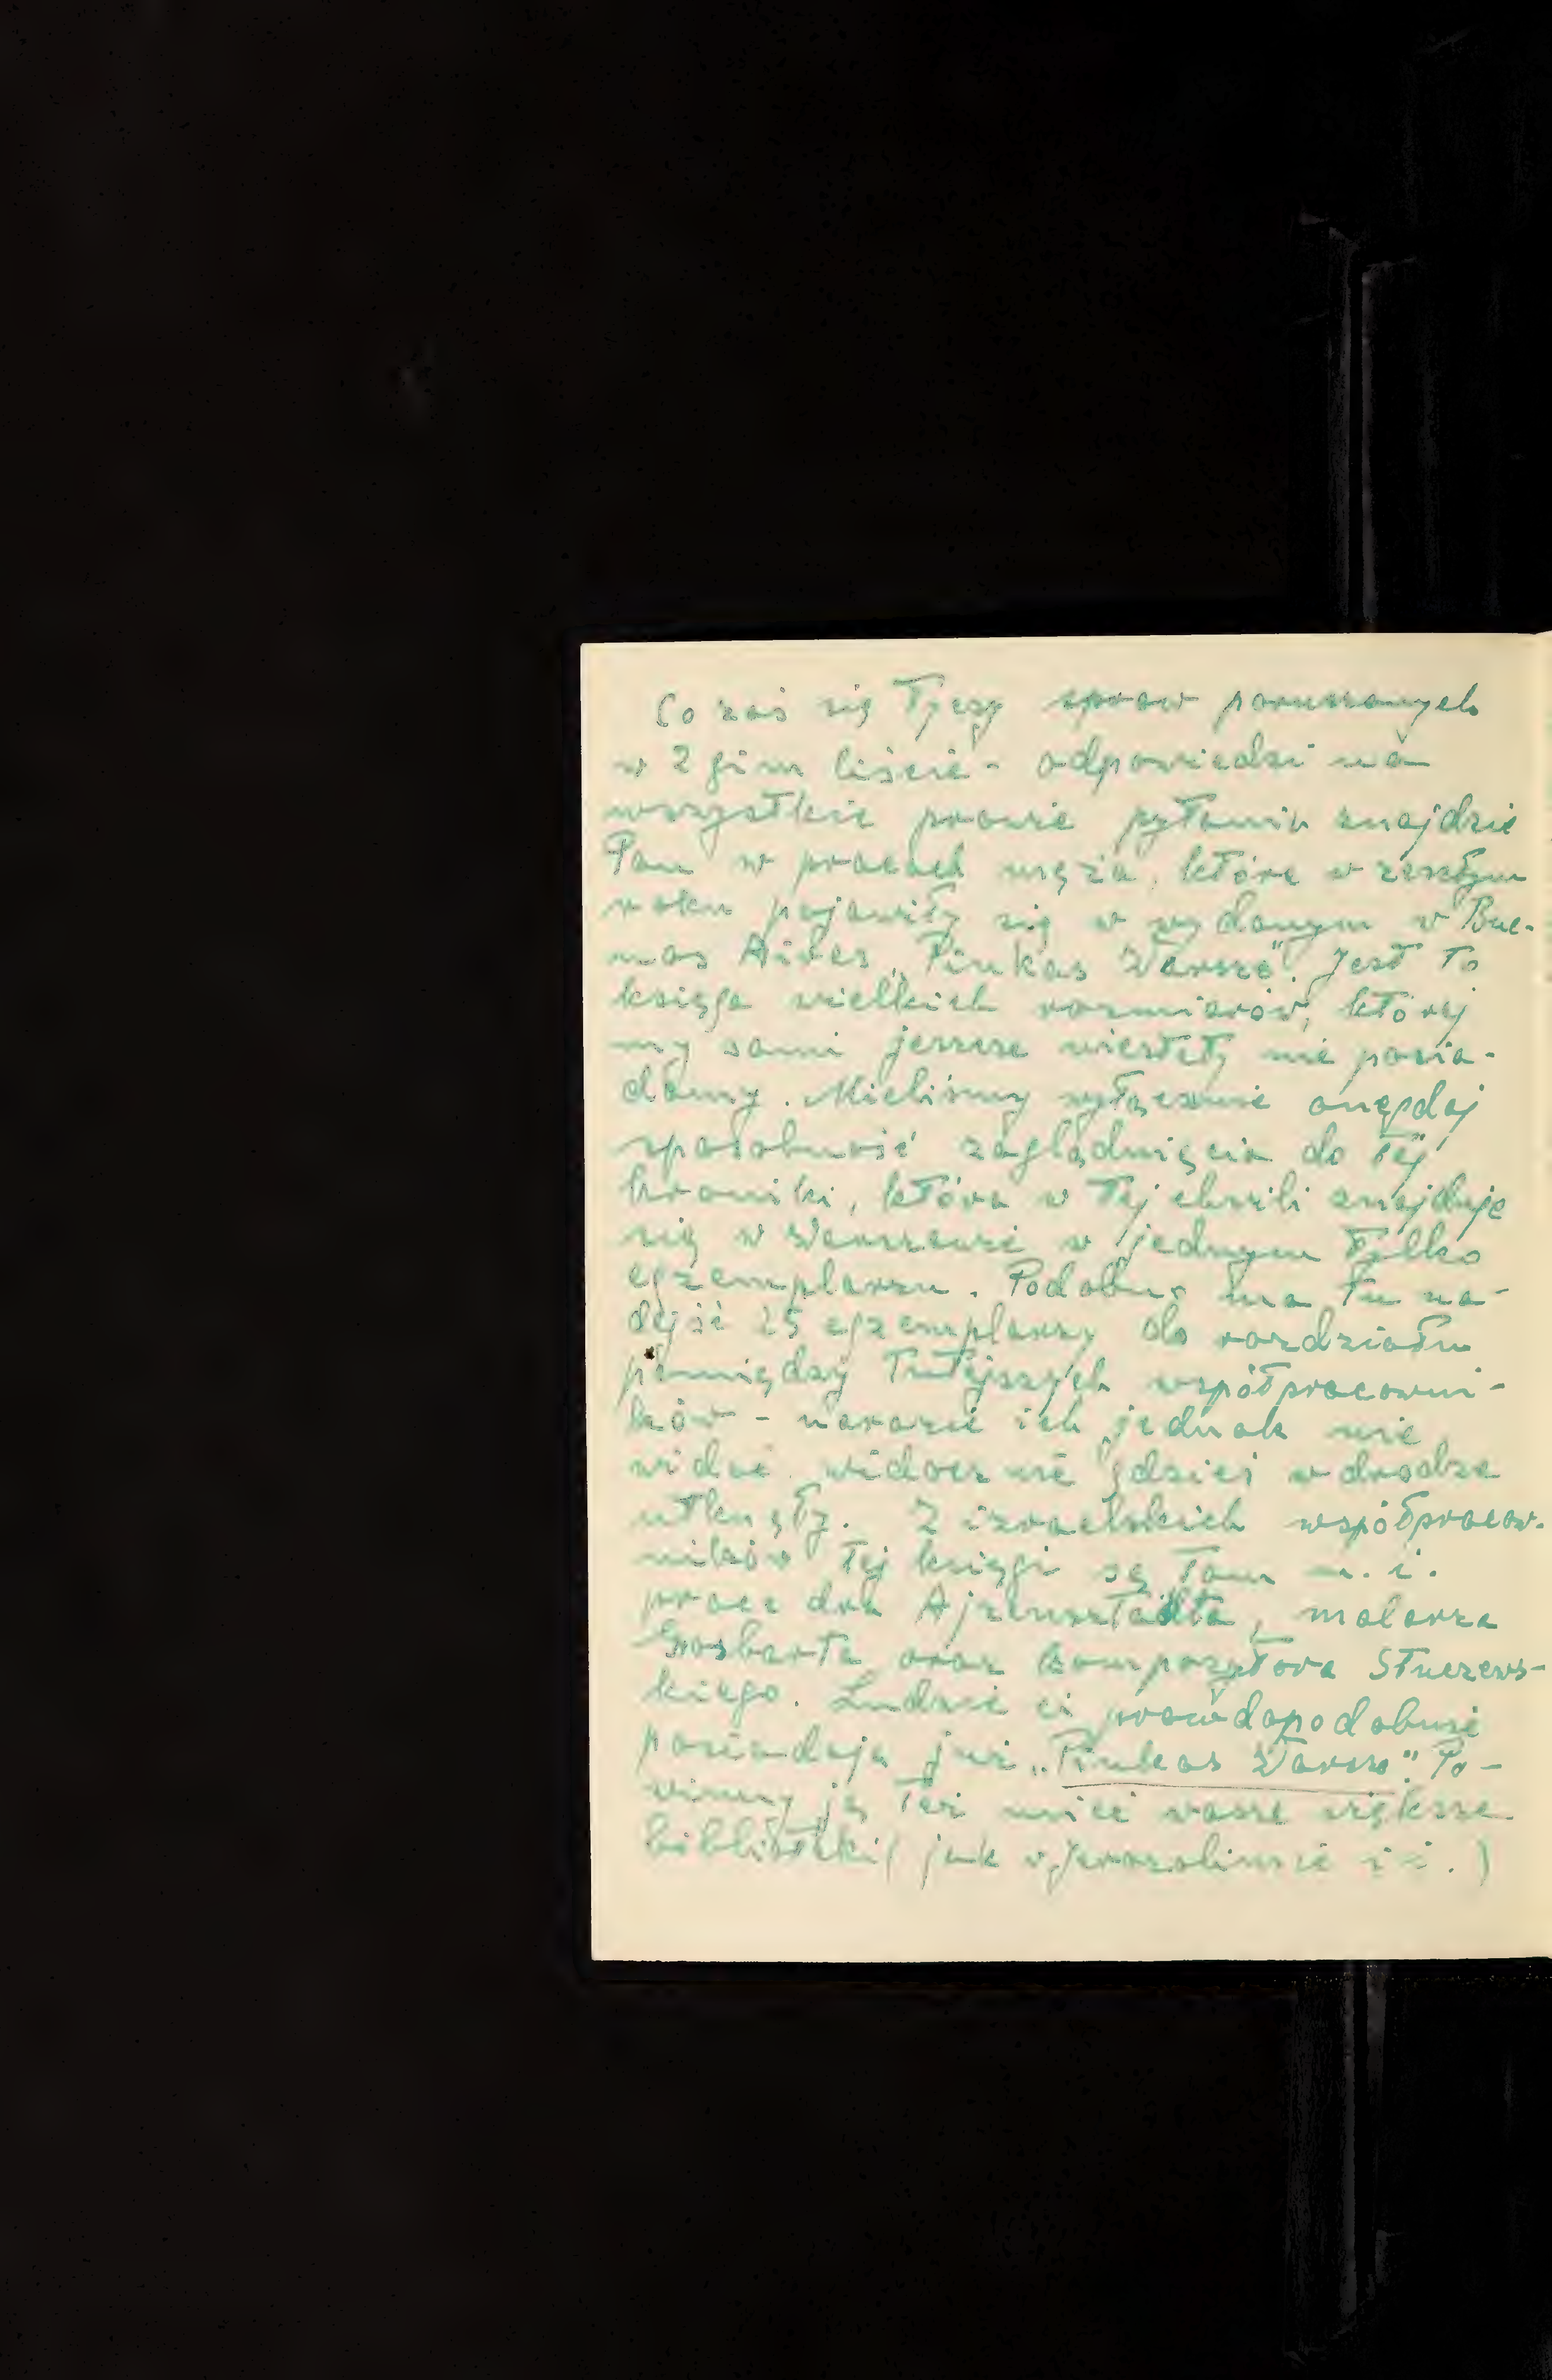 Co zaś się tyczy spraw poruszanych
w 2gim liście - odpowiedzi na
wszystkie prawie pytania znajdzie
Pan w pracach męża, które w zeszłym
roku pojawiły się w wydanym w Bue-
nos Aires „Pinkas Warsze". Jest to
księga wielkich rozmiarów, której
my sami jeszcze niestety nie posia-
damy. Mieliśmy wyłącznie onegdaj
sposobność zaglądnięcia do tej
kroniki, która w tej chwili znajduje
się w Warszawie w jednym tylko
egzemplarzu. Podobno ma tu na-
dejść 25 egzemplarzy do rozdziału
pomiędzy tutejszych współpracowni-
ków - narazie ich jednak nie
widać widocznie gdzieś w drodze
utknęły. Z izraelskich współpracow-
ników tej księgi są tam m. i.
prace dra Ajzensztadta, malarza
kompozytora Stuczews-
kiego. Ludzie ci prawdopodobnie
posiadają już „Pinkas Warsze". Po-
winny ją też mieć wasze większe
biblioteki (jak w Jerozolimie i i.)